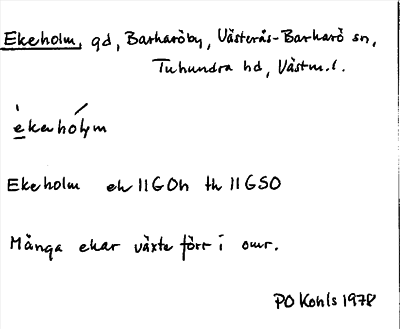 Ekeholm, gd, Barkaröby, Västerås-Barkarö sn,
Tuhundra hd, Västm.l.
ekehólm
Ekeholm ek 11G0h th 11GSO
Många ekar växte förr i omr.
PO Kohls 1978